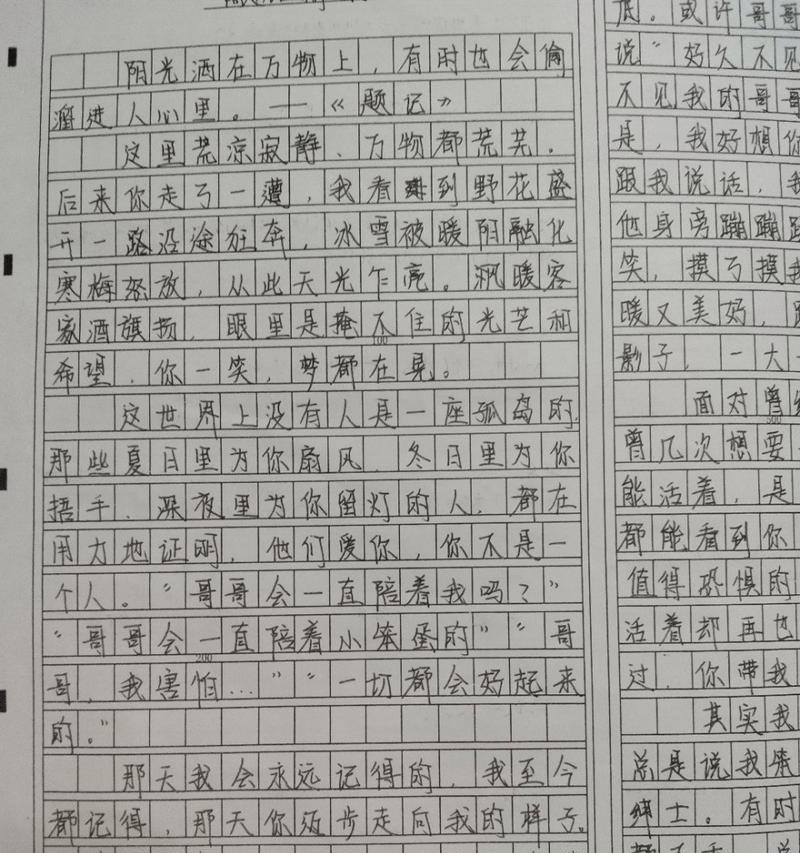 阳光洒在万物上，有时也会偷
溜进人心里。——《题记》
这里荒凉寂静、万物都荒芜。
后来你走了一遭，我看到野花盛
开一路沿途狂奔，冰雪被暖阳融化
寒梅怒放，从此天光乍亮。飒暖客
家酒旗扬，眼里是掩不住的光芒和
100
希望，你一笑，梦都在晃。
这世界上没有人是一座孤岛的，
那些夏日里为你扇风、冬日里为你
捂手、深夜里为你留灯的人，都在
用力地证明，他们爱你，你不是一
个人。“哥哥会一直陪着我吗？”
“哥哥会一直陪着小笨蛋的”“哥
200
哥，我害怕...”“一切都会好起来
的。”
那天我会永远记得的，我至今
都记得，那天你迈步走向我的样子。
底。或许哥哥
说“好久不见
不见我的哥哥
是，我好想你
跟我说话，我
他身旁蹦蹦
笑，摸了摸我
暖又美好，
影子，一大
面对曾经
500
曾几次想要
能活着，是
都能看到你
值得恐惧的
活着却再也
过，你带我
其实我
总是说我笨
绅士。有时